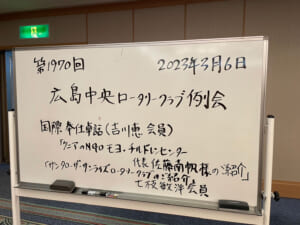 第1970回 2023年3月6日
広島中央ロータリークラブ例会
国際奉仕卓話(吉川恵会員)
「ウニデのNGO モヨ・チルドレンセンター
代表 佐藤南帆様のご紹介」
「サンタローザサンライズロータリークラブのご紹介」
七枝敏洋会員